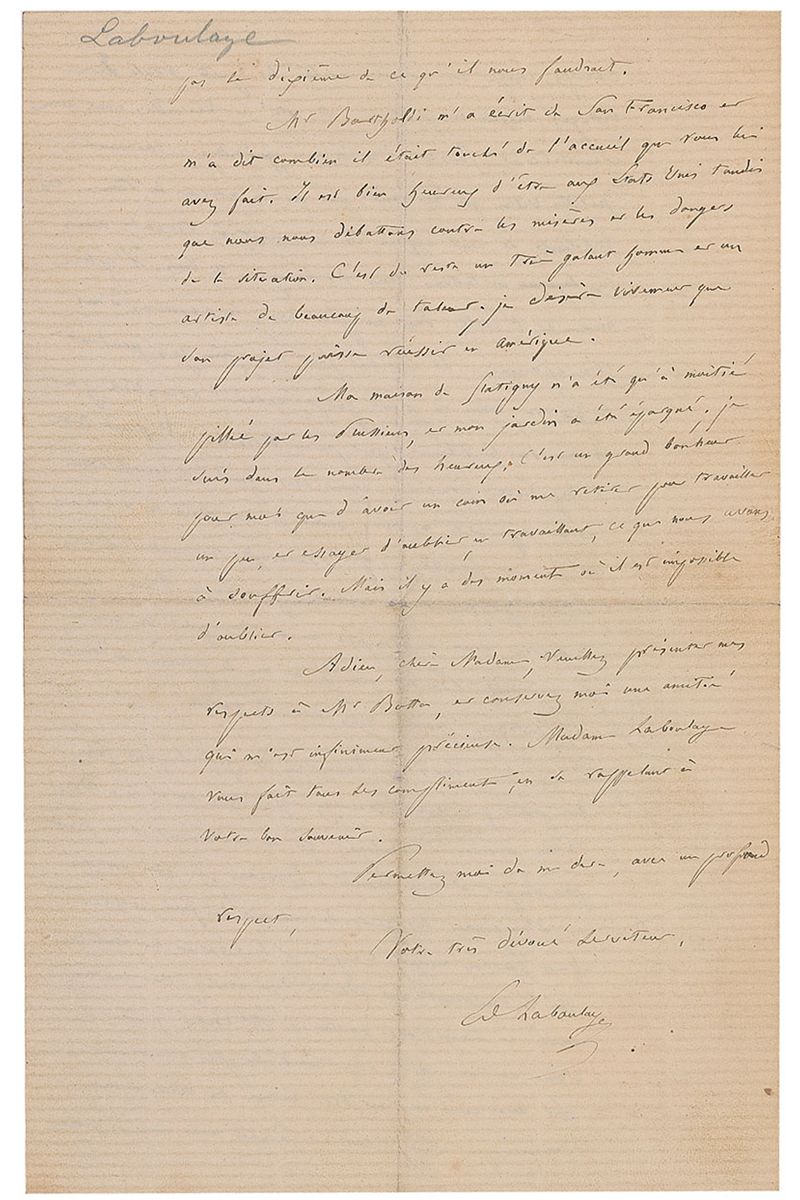 Laboulaye
pas le dixième de ce qu'il nous faudrait.
Mr Bartholdi m'a écrit de San Francisco et
m'a dit combien il était touché de l'accueil que vous lui
avez fait. Il est bien heureux d'être aux Etats Unis tandis
que nous nous débattons contre les misères et les dangers
de la situation. C'est du reste un très galant homme et un
artiste de beaucoup de talent. je désire vivement que
son projet puisse réussir en Amérique.
Ma maison de Glatigny n'a été qu'à moitié
pillée par les Prussiens, et mon jardin a été épargné. je
suis dans le nombre des heureux. C'est un grand bonheur
pour moi que d'avoir un coin où me retirer pour travailler
un peu, et essayer d'oublier, en travaillant, ce que nous avons
à souffrir. Mais il y a des moment où il est impossible
d'oublier.
Adieu, chère Madame, Veuillez présenter mes
respects à Mr Botta, et conservez moi une amitié
qui m'est infiniment précieuse. Madame Laboulaye
vous fait tous ses compliments en se rappelant à
votre bon souvenir.
Permettez moi de me dire, avec un profond
respect,
Votre très dévoué serviteur,
Ed Laboulaye